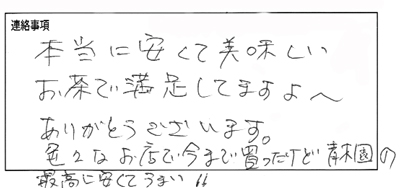 連絡事項
本当に安くて美味しい
お茶で満足してますよ〜
ありがとうございます。
色々なお店で今まで買ったけど 荒木園の
最高に安くてうまい!!